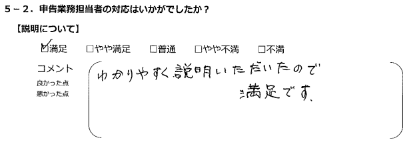 ５－２．申告業務担当者の対応はいかがでしたか？
【説明について】
☑満足 □やや満足 □普通 □やや不満 □不満
コメント
良かった点
悪かった点
わかりやすく説明いただいたので
満足です。